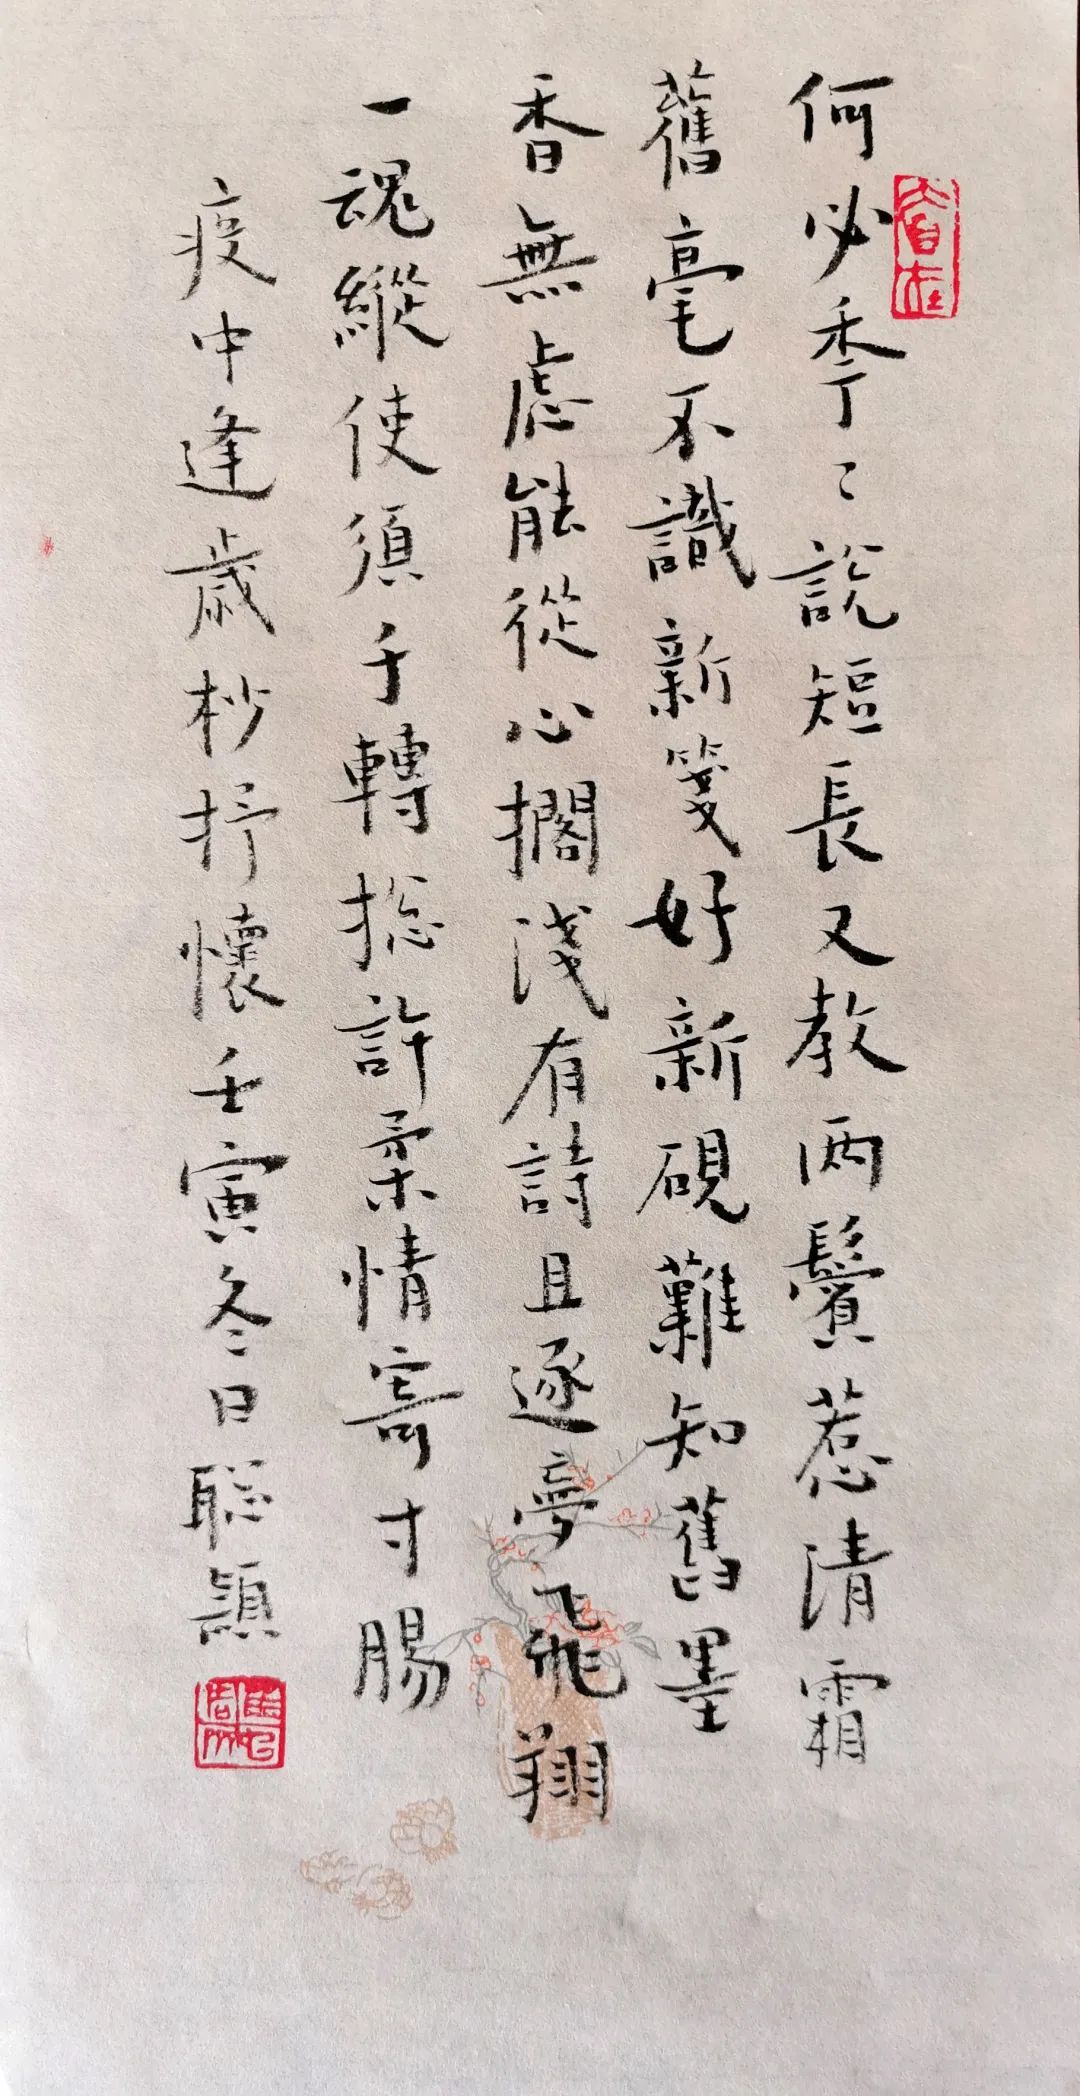 何必秊〻說短長又教两鬢惹清霜
舊毫不識新箋好新硯難知舊墨
香無慮能從心擱淺有詩且逐夢飛翔
一魂縱使須千轉捴許柔情寄寸腸
疫中逢歲杪抒懷壬寅冬日聪穎